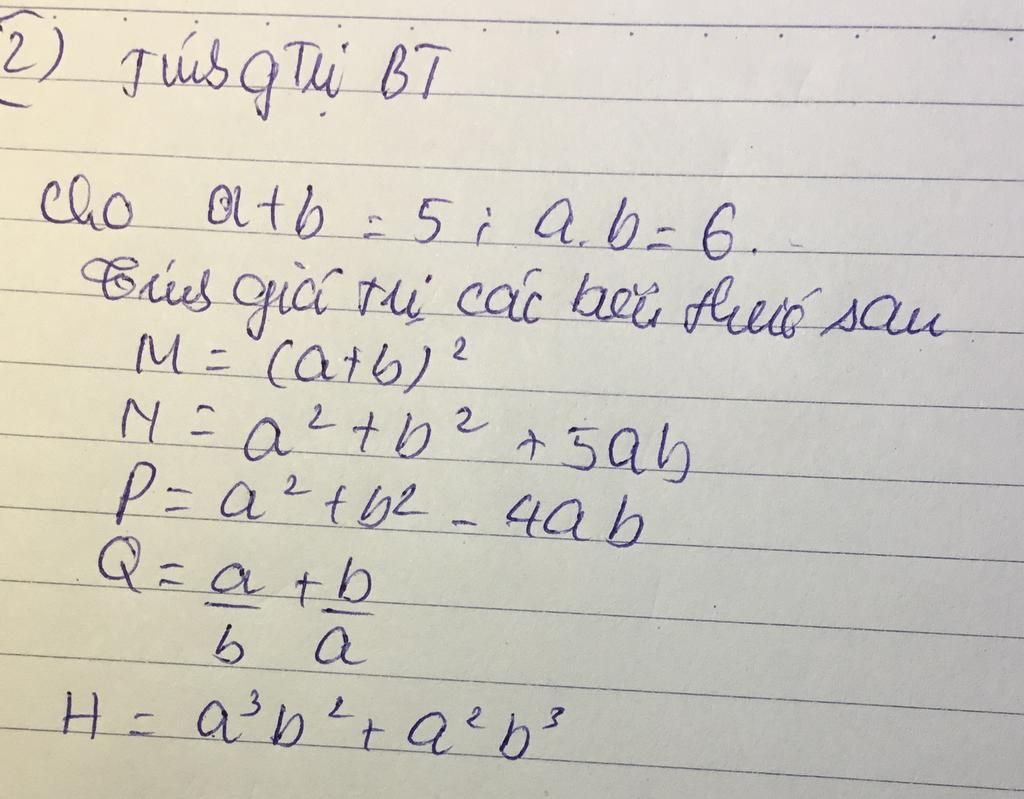 2) Tính gTrị BT
Cho a+b = 5 ; a.b = 6.
Tính giá trị các biểu thức sau
M = (a+b)²
N = a² + b² + 5ab
P = a² + b² - 4ab
Q = a/b + b/a
H = a³b² + a²b³